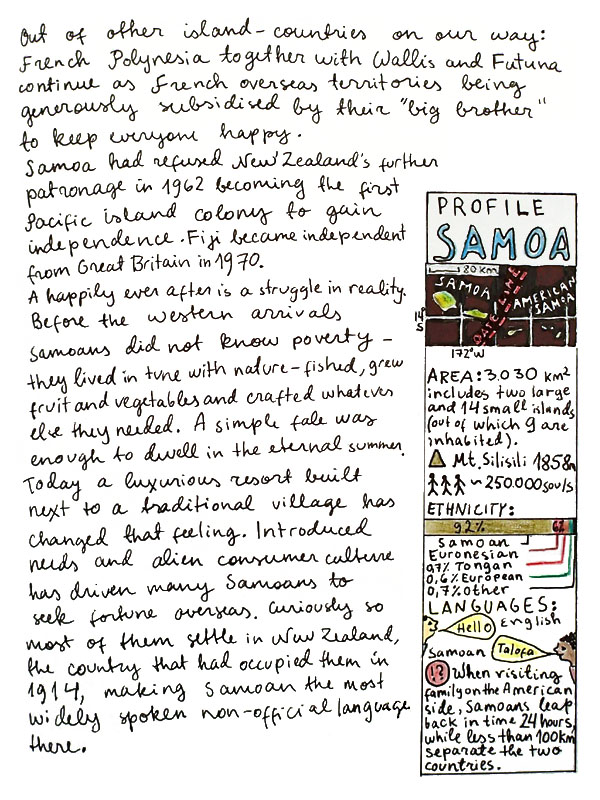 Out of other island-countries on our way:
French Polynesia together with Wallis and Futuna
continue as French overseas territories being
generously subsidised by their "big brother"
to keep everyone happy.
Samoa had refused New Zealand's further
patronage in 1962 becoming the first
Pacific island colony to gain
independence. Fiji became independent
from Great Britain in 1970.
A happily ever after is a struggle in reality.
Before the western arrivals
Samoans did not know poverty –
they lived in tune with nature – fished, grew
fruit and vegetables and crafted whatever
else they needed. A simple fale was
enough to dwell in the eternal summer.
Today a luxurious resort built
next to a traditional village has
changed that feeling. Introduced
needs and alien consumer culture
has driven many Samoans to
seek fortune overseas. Curiously so
most of them settle in New Zealand,
the country that had occupied them in
1914, making Samoan the most
widely spoken non-official language
there.
PROFILE
SAMOA
80 km
SAMOA
DATE LINE
AMERICAN
SAMOA
14°
S
172°W
AREA: 3.030 km²
includes two large
and 14 small islands
(out of which 9 are
inhabited).
Mt. Silisili 1858m
~ 250.000 souls
ETHNICITY:
92% 6%
Samoan
Euronesian
0,7% Tongan
0,6% European
0,7% other
LANGUAGES:
Hello English
Samoan Talofa
!? When visiting
family on the American
side, Samoans leap
back in time 24 hours,
while less than 100km
separate the two
countries.